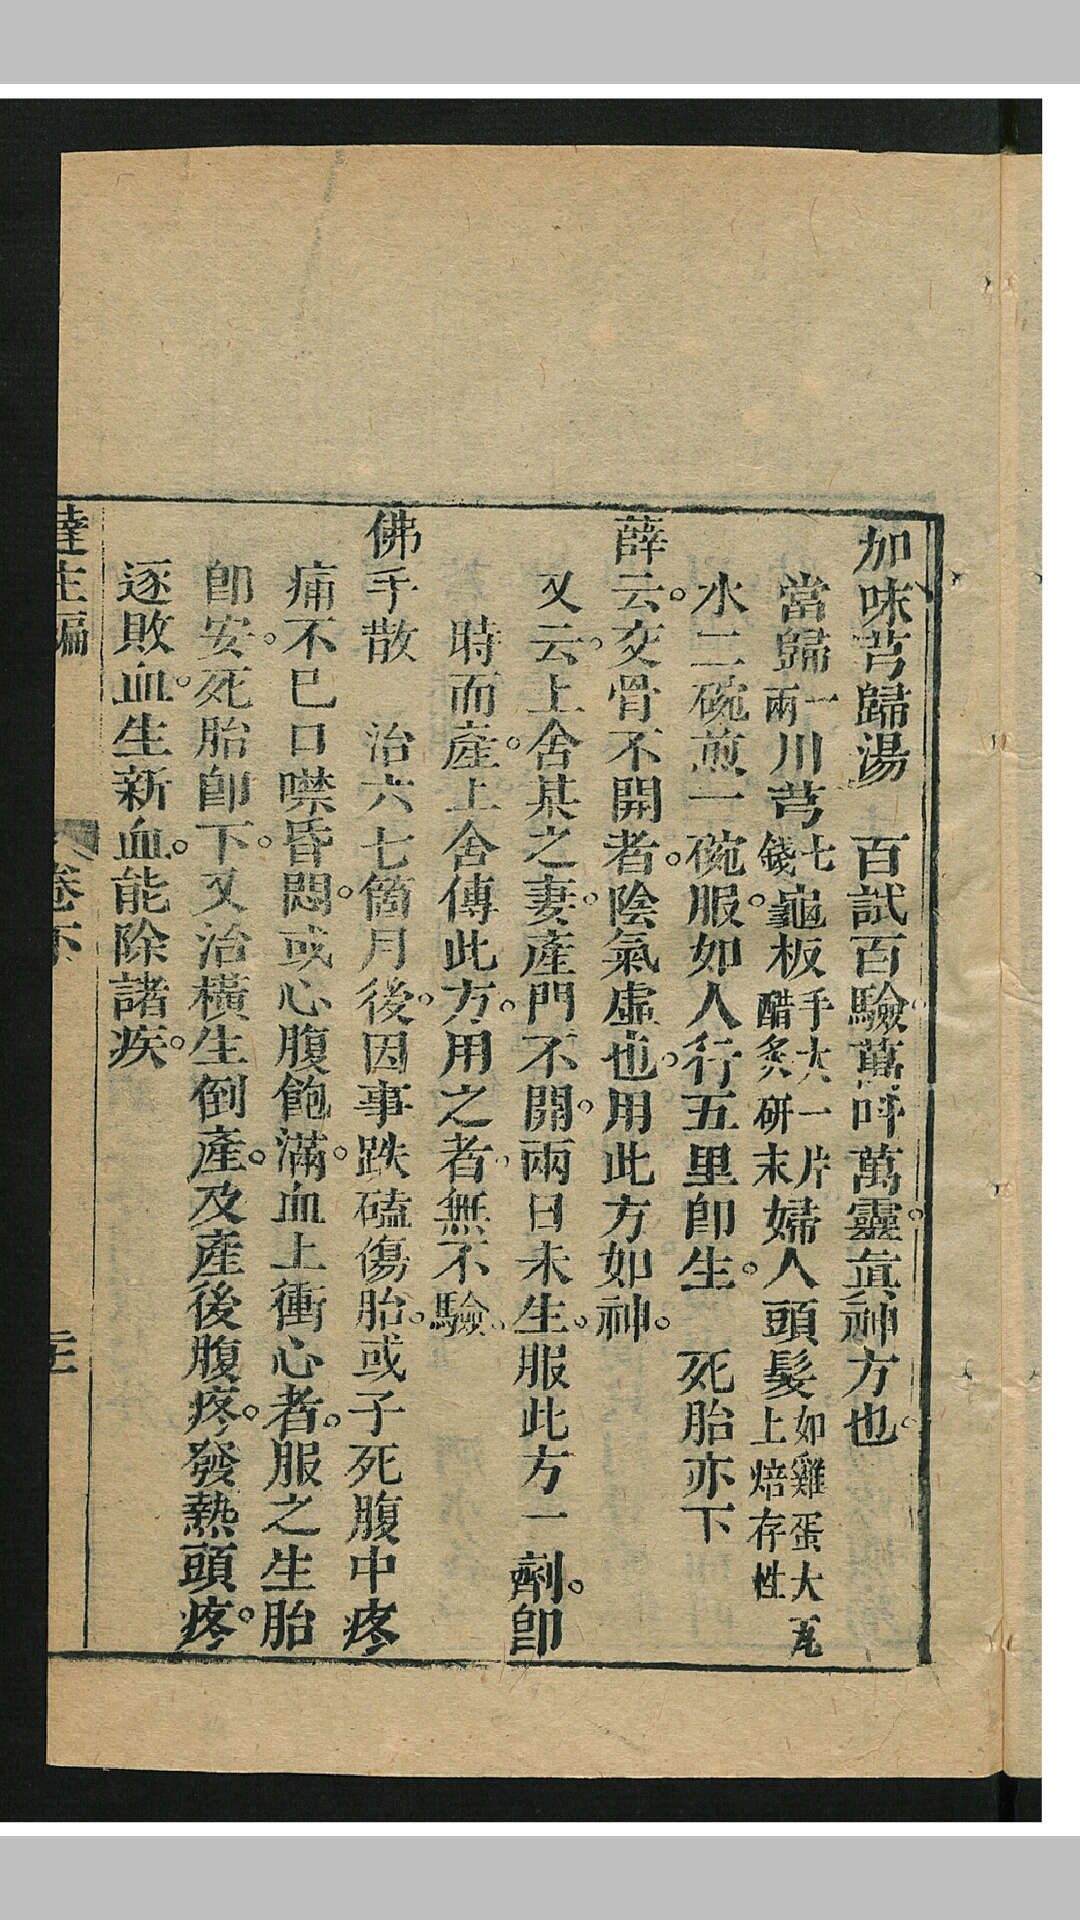 加味芎歸湯　百試百驗萬呼萬靈眞神方也
當歸一兩川芎七錢龜板手大一片醋炙研末婦人頭髮如雞蛋大瓦上焙存性
水二碗煎一碗服如人行五里卽生。死胎亦下
薛云。交骨不開者。陰氣虛也。用此方如神。
又云。上舍某之妻。產門不開。兩日未生。服此方一劑。卽
時而產。上舍傳此方。用之者無不驗。
佛手散　治六七箇月後。因事跌磕傷胎。或子死腹中疼
痛不已口噤昏悶。或心腹飽滿。血上衝心者。服之生胎
卽安。死胎卽下。又治橫生倒產。及產後腹疼。發熱頭疼。
逐敗血。生新血。能除諸疾。
達生編　卷下